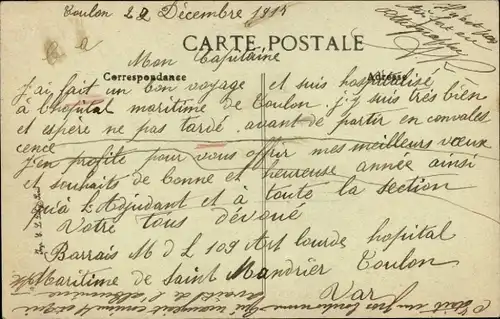 Toulon 22 Décembre 1915
CARTE POSTALE
Correspondance
Adresse
Mon Capitaine
J'ai fait un bon voyage et suis hospitalisé
à l'hopital maritime de Toulon. j'y suis très bien
et espère ne pas tardé avant de partir en convales
cence
j'en profite pour vous offrir mes meilleurs vœux
et souhaits de bonne et heureuse année ainsi
qu'à l'Adjudant et à toute la section
Votre tous dévoué
Barrais M d L 109 Art lourde hopital
Maritime de Saint Mandrier Toulon
Var
C'était un gros bonhomme qui